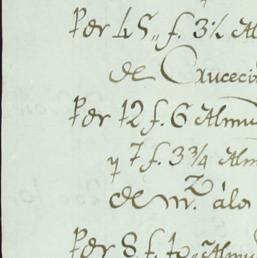 Per 45,, f. 3½ Al
de Cruceci
Per 12 f. 6 Almu
y 7 f. 3¾ Alm
de m.ᶻ álos
Per 8 f. Almu